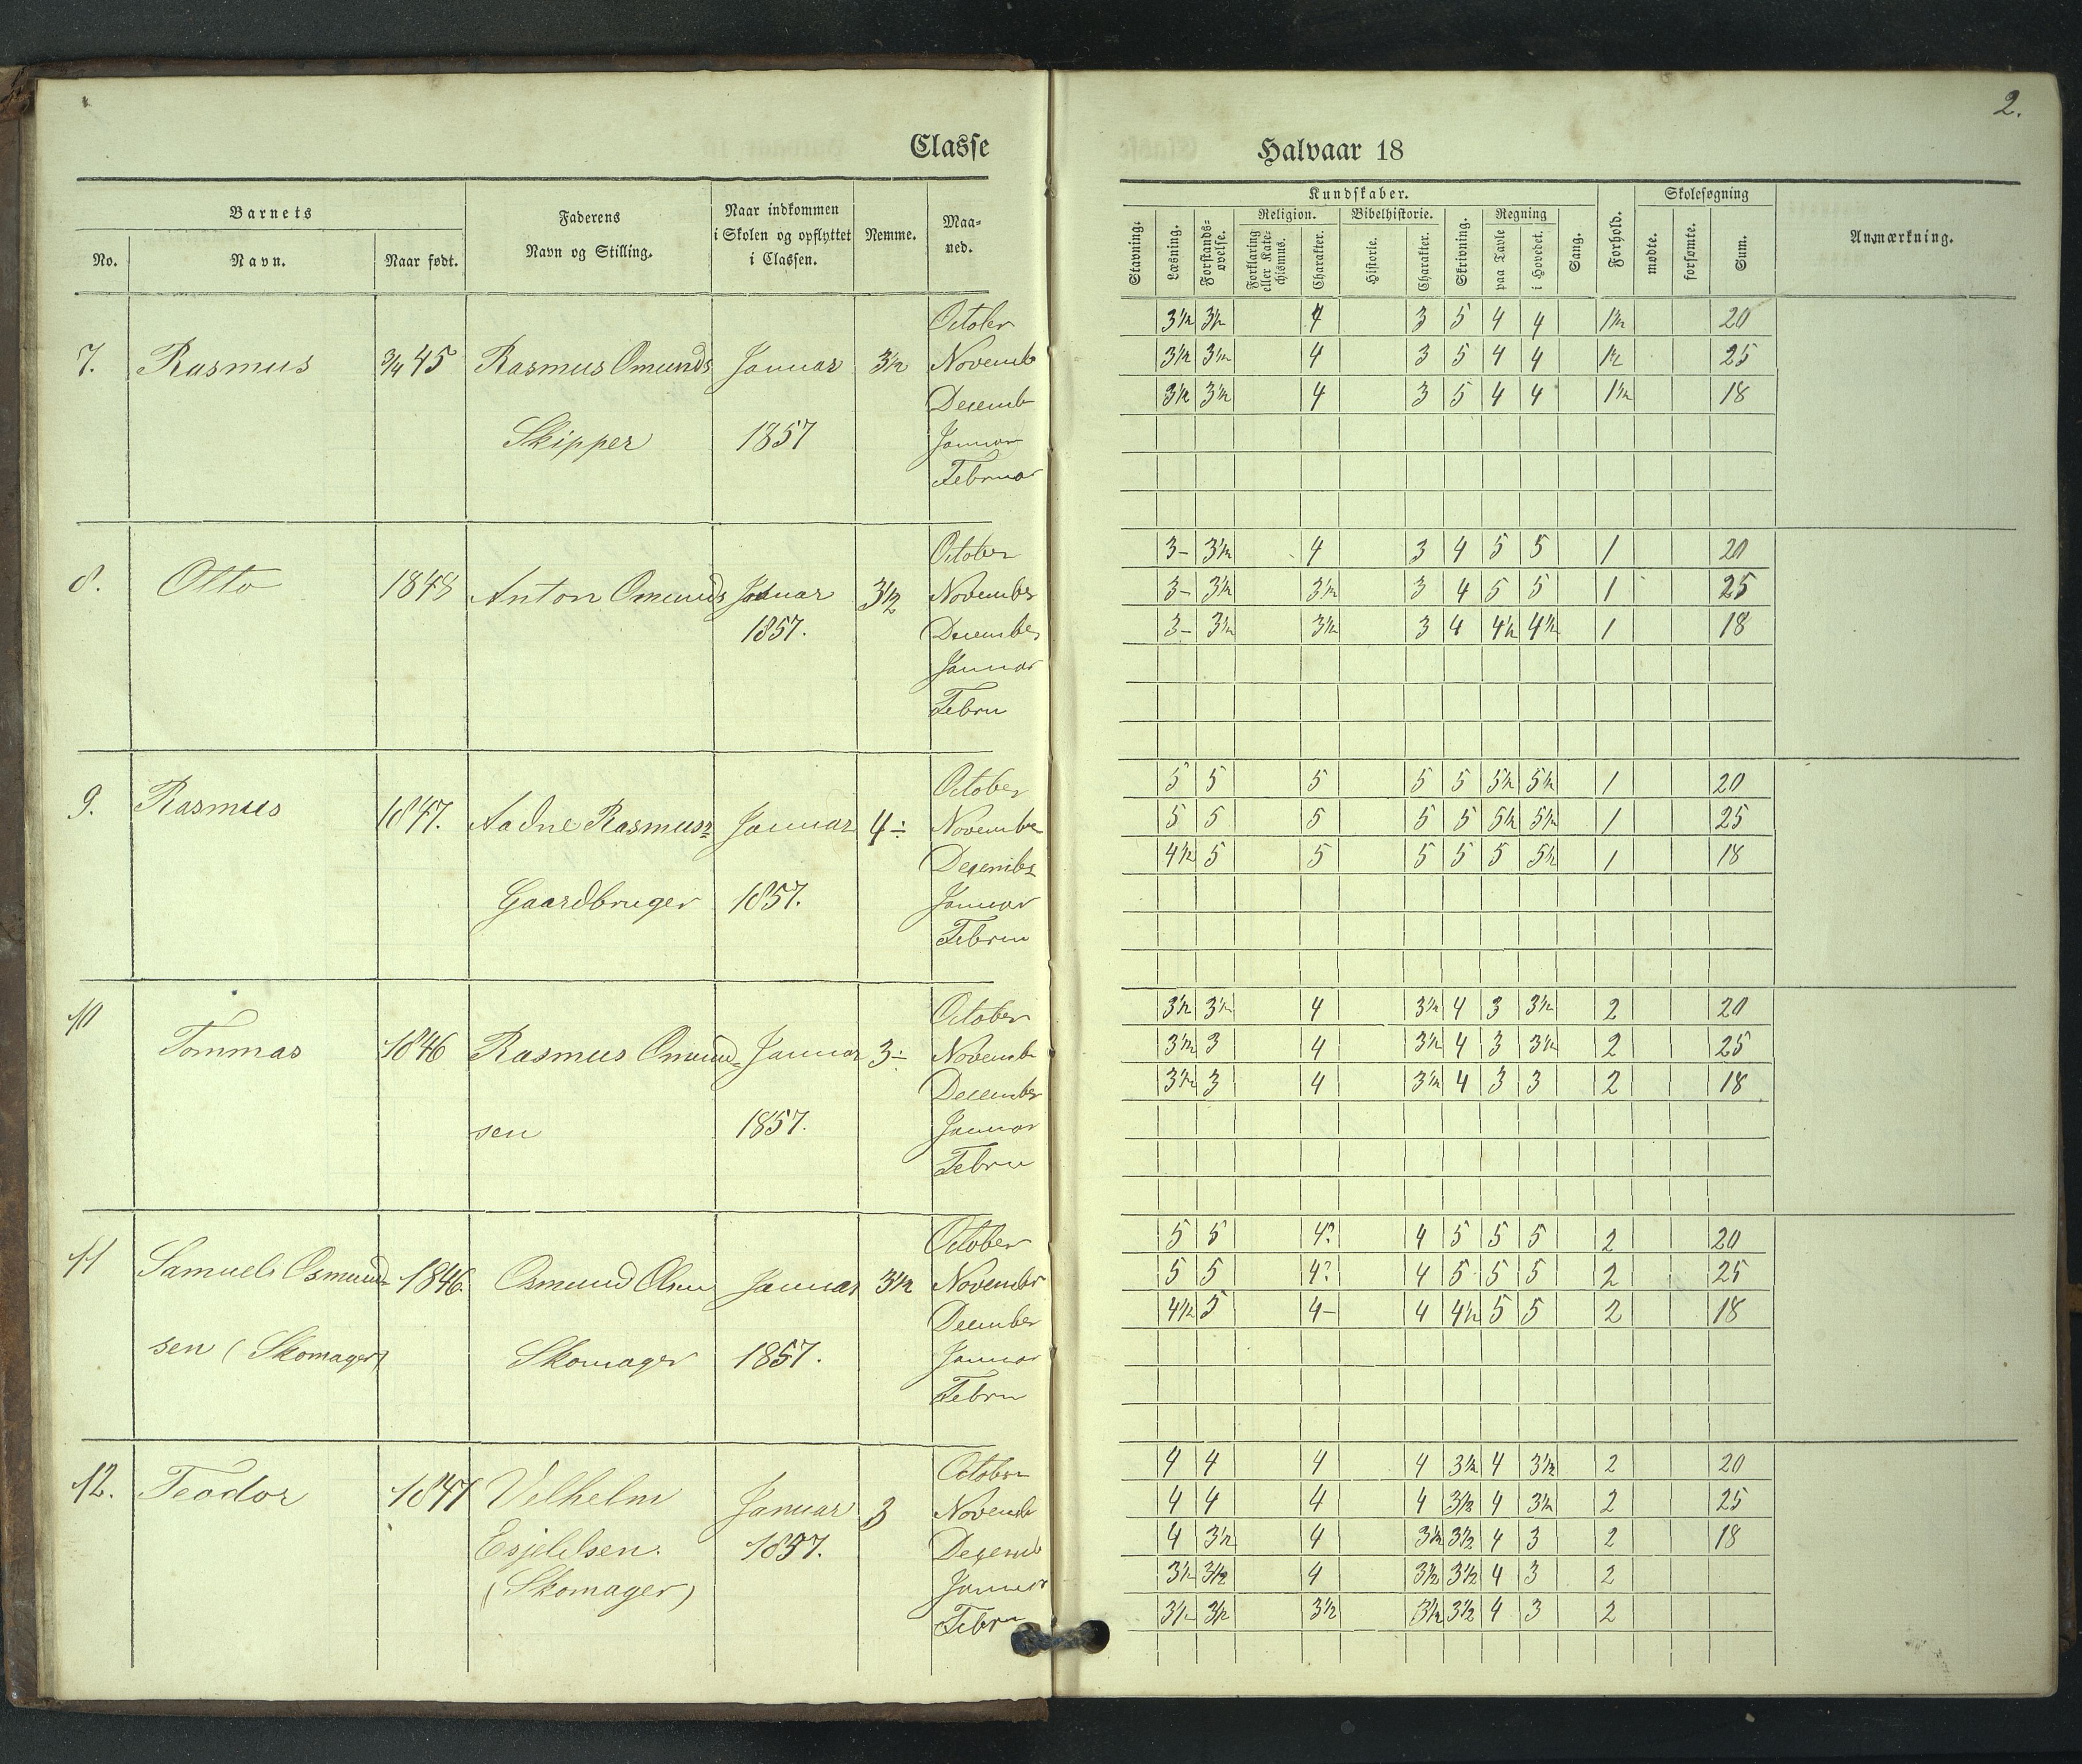 2.
Classe Halvaar 18
Barnets
No. Navn. Naar født. Faderens Navn og Stilling. Naar indkommen i Skolen og opflyttet i Classen. Nemme. Maaned.
Kundskaber. Skolesøgning
Stavning. Læsning. Forstandsøvelse. Religion. Forklaring eller Katechismus. Charakter. Bibelhistorie. Historie. Charakter. Skrivning. Regning paa Tavle i Hovedet. Sang. Forhold. mødte. forsømte. Sum. Anmærkning.
October 3½ 3½ 4 3 5 4 4 1½ 20
7. Rasmus ¾ 45 Rasmus Omunds Januar 3½ Novemb 3½ 3½ 4 3 5 4 4 1½ 25
Decemb 3½ 3½ 4 3 5 4 4 1½ 18
Skipper 1857 Januar
Februar
October 3- 3½ 4 3 4 5 5 1 20
8. Otto 1848 Anton Omunds Januar 3½ November 3- 3½ 3½ 3 4 5 5 1 25
1857. December 3- 3½ 3½ 3 4 4½ 4½ 1 18
Januar
Febru
October 5 5 5 5 5 5½ 5½ 1 20
9. Rasmus 1847. Aadne Rasmusz Januar 4÷ November 5 5 5 5 5 5½ 5½ 1 25
Decembr 4½ 5 5 5 5 5 5½ 1 18
Gaardbruger 1857. Januar
Februr
October 3½ 3½ 4 3½ 4 3 3½ 2 20
10 Tommas 1846 Rasmus Omund- Januar 3÷ Novemb 3½ 3 4 3½ 4 3 3½ 2 25
December 3½ 3 4 3½ 4 3 3 2 18
sen 1857. Januar
Febru
October 5 5 4? 4 5 5 5 2 20
11 Samuel Osmund- 1846. Osmund Olsen Januar 3½ November 5 5 4? 4 5 5 5 2 25
December 4½ 5 4- 4 4½ 5 5 2 18
sen (Skomager) Skomager 1857. Januar
Febru
October 4 4 4 4 3½ 4 3½ 2 20
12. Teodor 1847 Vilhelm Januar 3 Novemb 4 4 4 4 3½ 4 3½ 2 25
Esjeldsen. 1857. Decemb 4 3½ 4 3½ 3½ 4 3 2 18
(Skomager) Januar 3½ 3½ 4 3½ 3½ 4 3 2
Febru 3½ 3½ 3½ 3½ 3½ 4 3 2